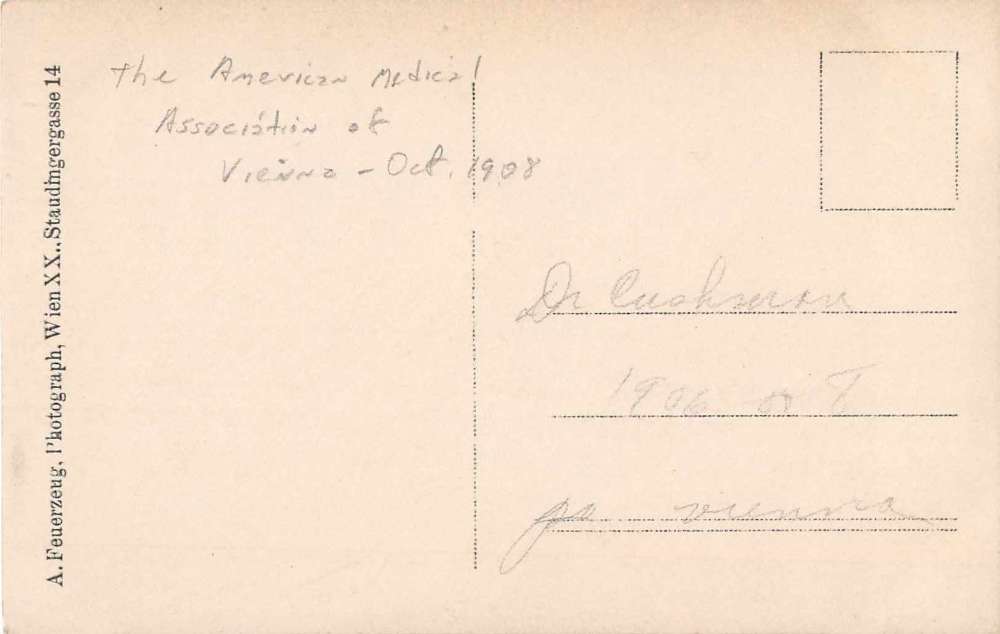 A. Feuerzeug, Photograph, Wien XX., Staudingergasse 14
The American Medical
Association of
Vienna - Oct. 1908
Dr Cushman
1906 or 7
Vienna